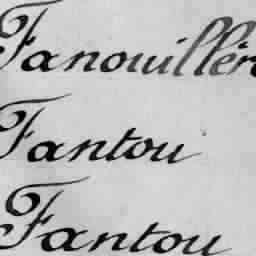 Fanouillère
Fantou
Fantou